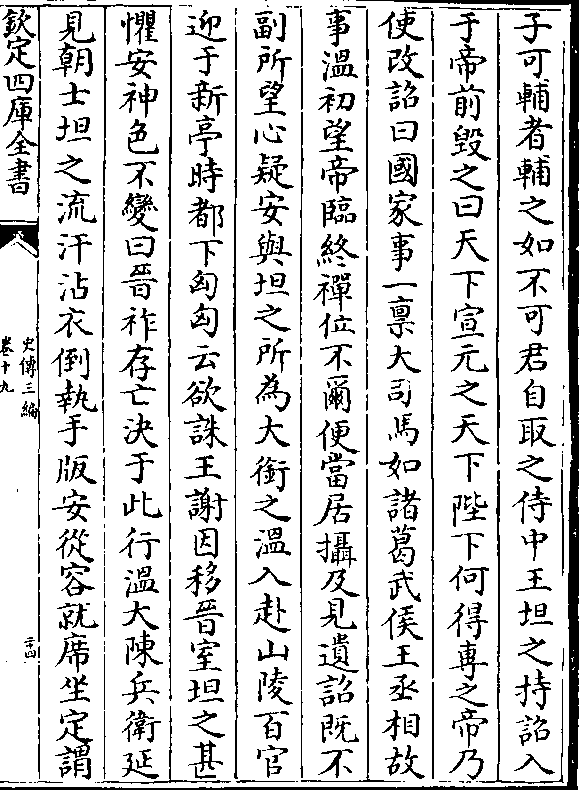 子可輔者輔之如不可君自取之侍中王坦之持詔入
于帝前毀之曰天下宣元之天下陛下何得專之帝乃
使改詔曰國家事一禀大司馬如諸葛武侯王丞相故
事溫初望帝臨終禪位不爾便當居攝及見遺詔既不
副所望心疑安與坦之所為大銜之溫入赴山陵百官
迎于新亭時都下匈匈云欲誅王謝因移晉室坦之甚
懼安神色不變曰晉祚存亡決于此行溫大陳兵衛延
見朝士坦之流汗沾衣倒執手版安從容就席坐定謂
欽定四庫全書
史傳三編
卷十九
二十四